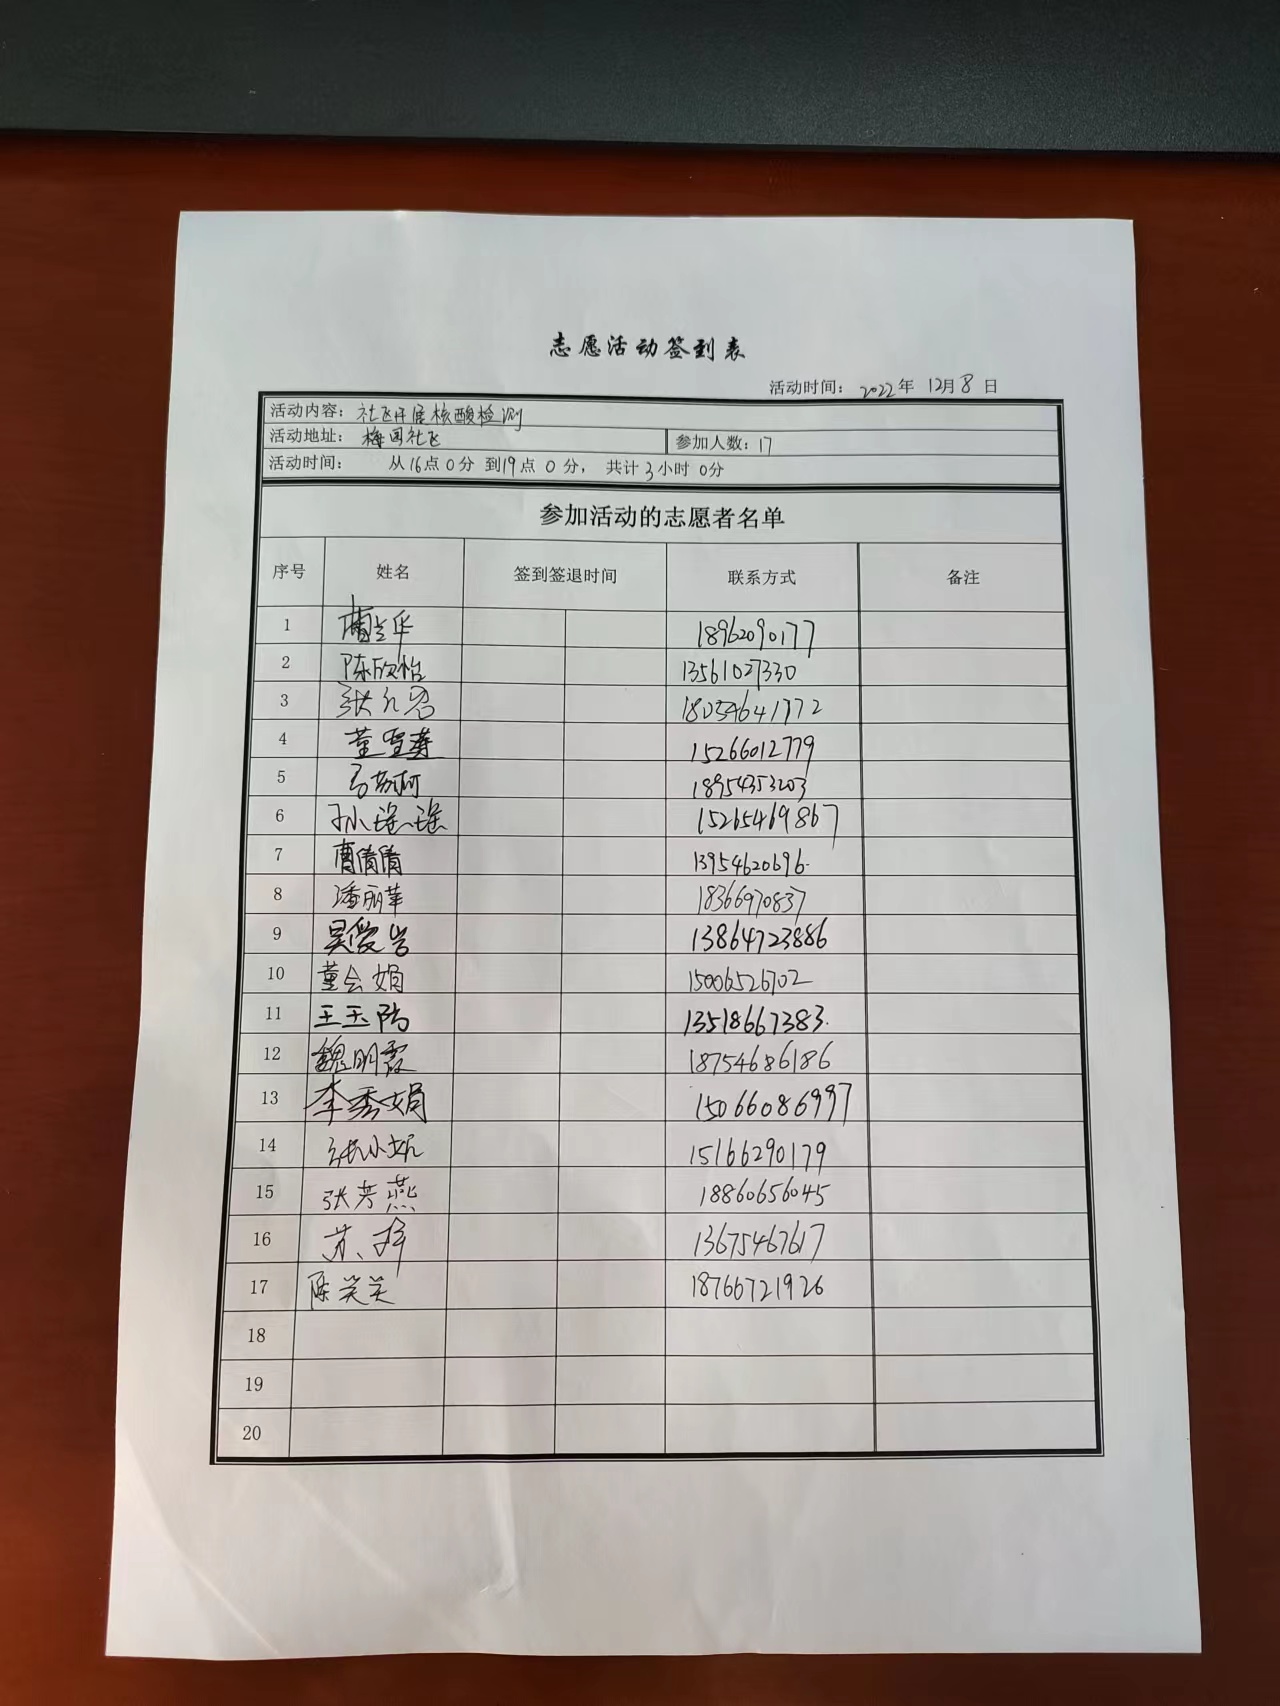 志愿活动签到表
活动时间： 2022年 12月8日
活动内容：社区开展核酸检测
活动地址： 梅园社区 参加人数：17
活动时间： 从16点0分 到19点0分， 共计3小时0分
参加活动的志愿者名单
序号 姓名 签到签退时间 联系方式 备注
1 18962090177
2 陈欣怡 13561027330
3 18054641772
4 15266012779
5 18954353203
6 孙瑶瑶 15265469867
7 曹倩倩 13954620696
8 潘丽苹 18366970837
9 吴爱岩 13864723886
10 董会娟 15006526702
11 王玉 13518667383
12 魏明霞 18754686186
13 李秀娟 15066086997
14 张小妮 15166290179
15 张芳燕 18860656045
16 苏 13675467617
17 陈笑笑 18766721926
18
19
20